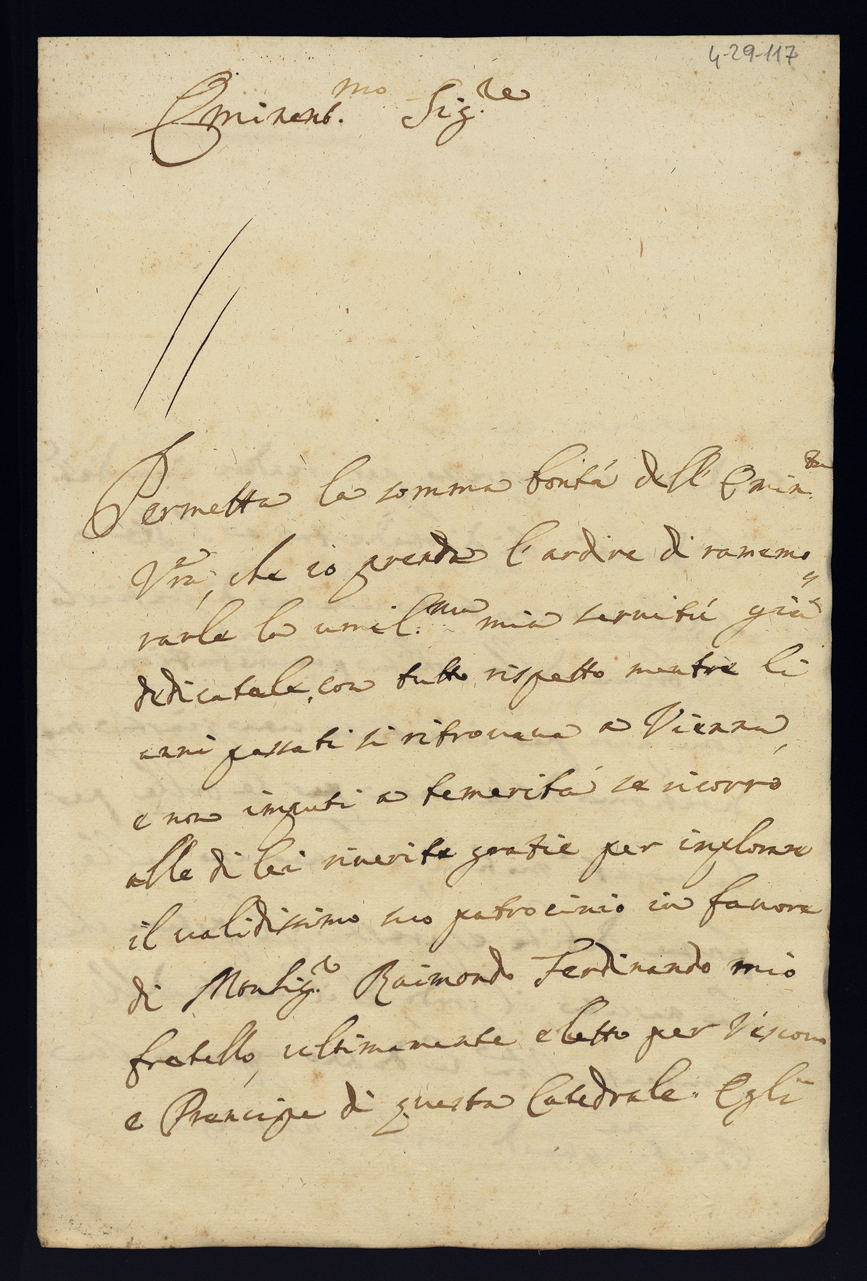 4-29-117
Eminent.mo Sig.re
Permetta la somma bontá dell' Emin.za
Vra, che io prenda l'ardire di ramemo
rarle la umil.ma mia servitú giá
dedicatale, con tutto rispetto mentre li
anni passati si ritrovava a Vienna,
e non imputi a temeritá se ricorro
alle di lei riverite gratie per implorare
il validissimo suo patrocinio in favore
di Monsig.r Raimondo Ferdinando mio
fratello, ultimamente eletto per Vescovo
e Prencipe di questa Catedrale. Egli